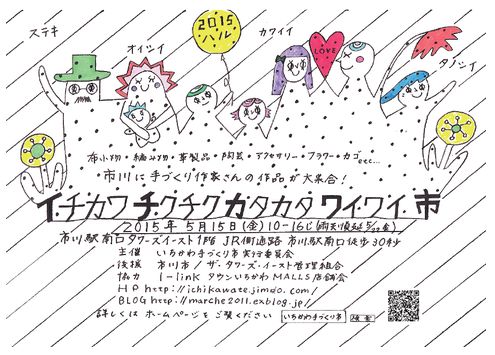 ステキ
オイシイ
2015
ハル
カワイイ
LOVE
タノシイ
布小物・編み物・革製品・陶芸・アクセサリー・フラワー・カゴetc...
市川に手づくり作家さんの作品が大集合!
イチカワ チクチク カタカタ ワイワイ 市
2015年5月15日(金)10-16じ
市川駅南口タワーズイースト1階 JR側通路 市川駅南口徒歩30秒
主催 いちかわ手づくり市実行委員会
後援 市川市/ザ・タワーズ・イースト管理組合
協力 I-linkタウンいちかわMALLS店舗会
HP http://ichikawate.jimdo.com/
BLOG http://marche2011.exblog.jp/
詳しくは ホームページをご覧ください いちかわ手づくり市 検索